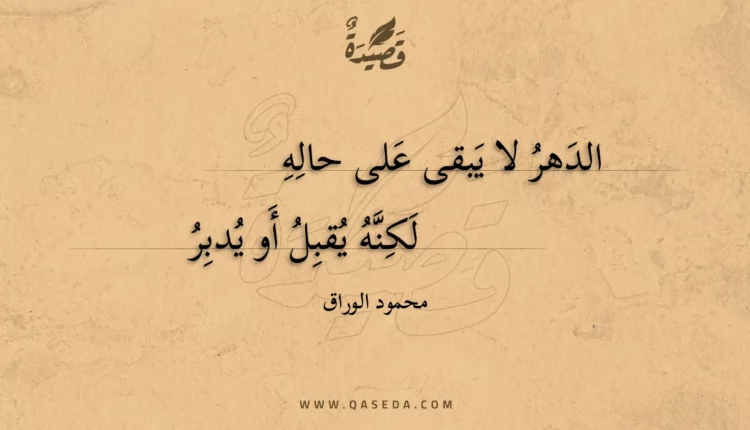 قَصِيدَةٌ
الدَهرُ لا يَبقى عَلى حالِهِ
لَكِنَّهُ يُقبِلُ أَو يُدبِرُ
محمود الوراق
WWW.QASEDA.COM